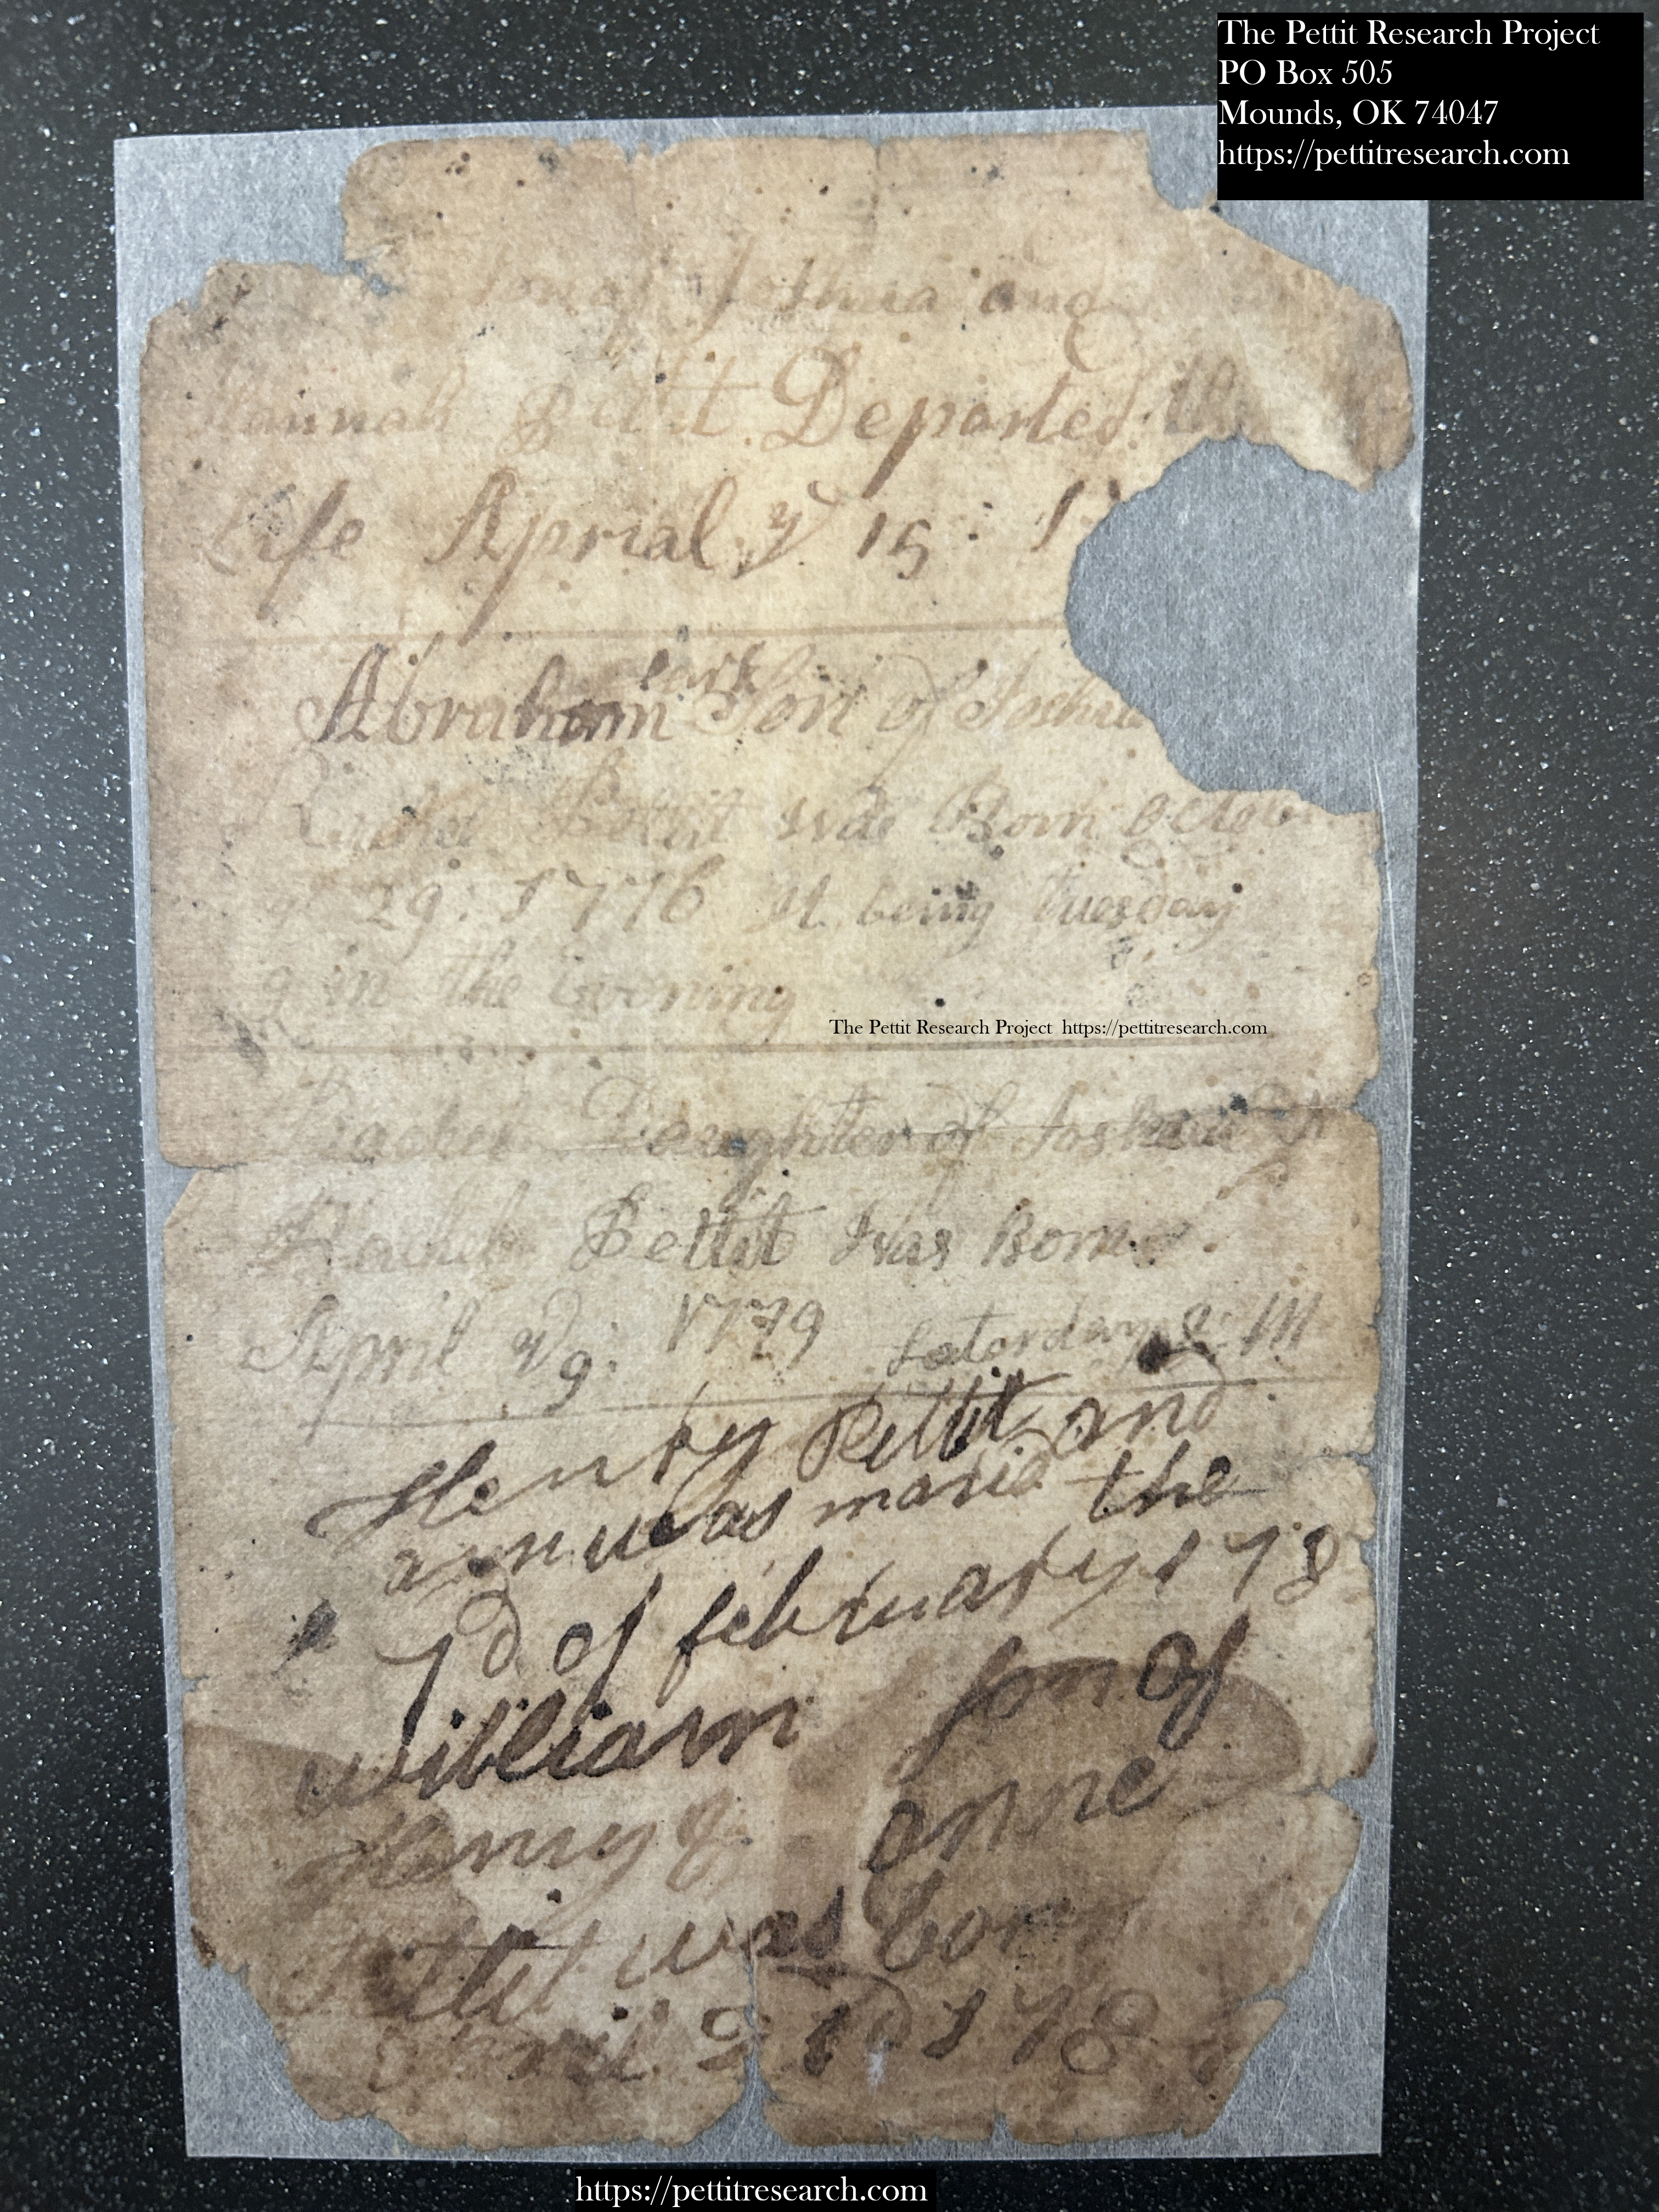 The Pettit Research Project
PO Box 505
Mounds, OK 74047
https://pettitresearch.com
Son of Joshua and
Hannah Pettit Departed th
Life Aprial ye 15 : 17
Clark
Abraham Son of Joshua
Pettit was Born Octob
29 : 1776 It being tuesday
9 in the Evening
The Pettit Research Project https://pettitresearch.com
Rachel Daughter of Joshua
Rachel Pettit Was Born
April 9 : 1779 Satorday M
Henry Pettit and
ann was maried the
7d of february 178
william son of
Henry & anne
Pettit was born
April 21d 178
https://pettitresearch.com